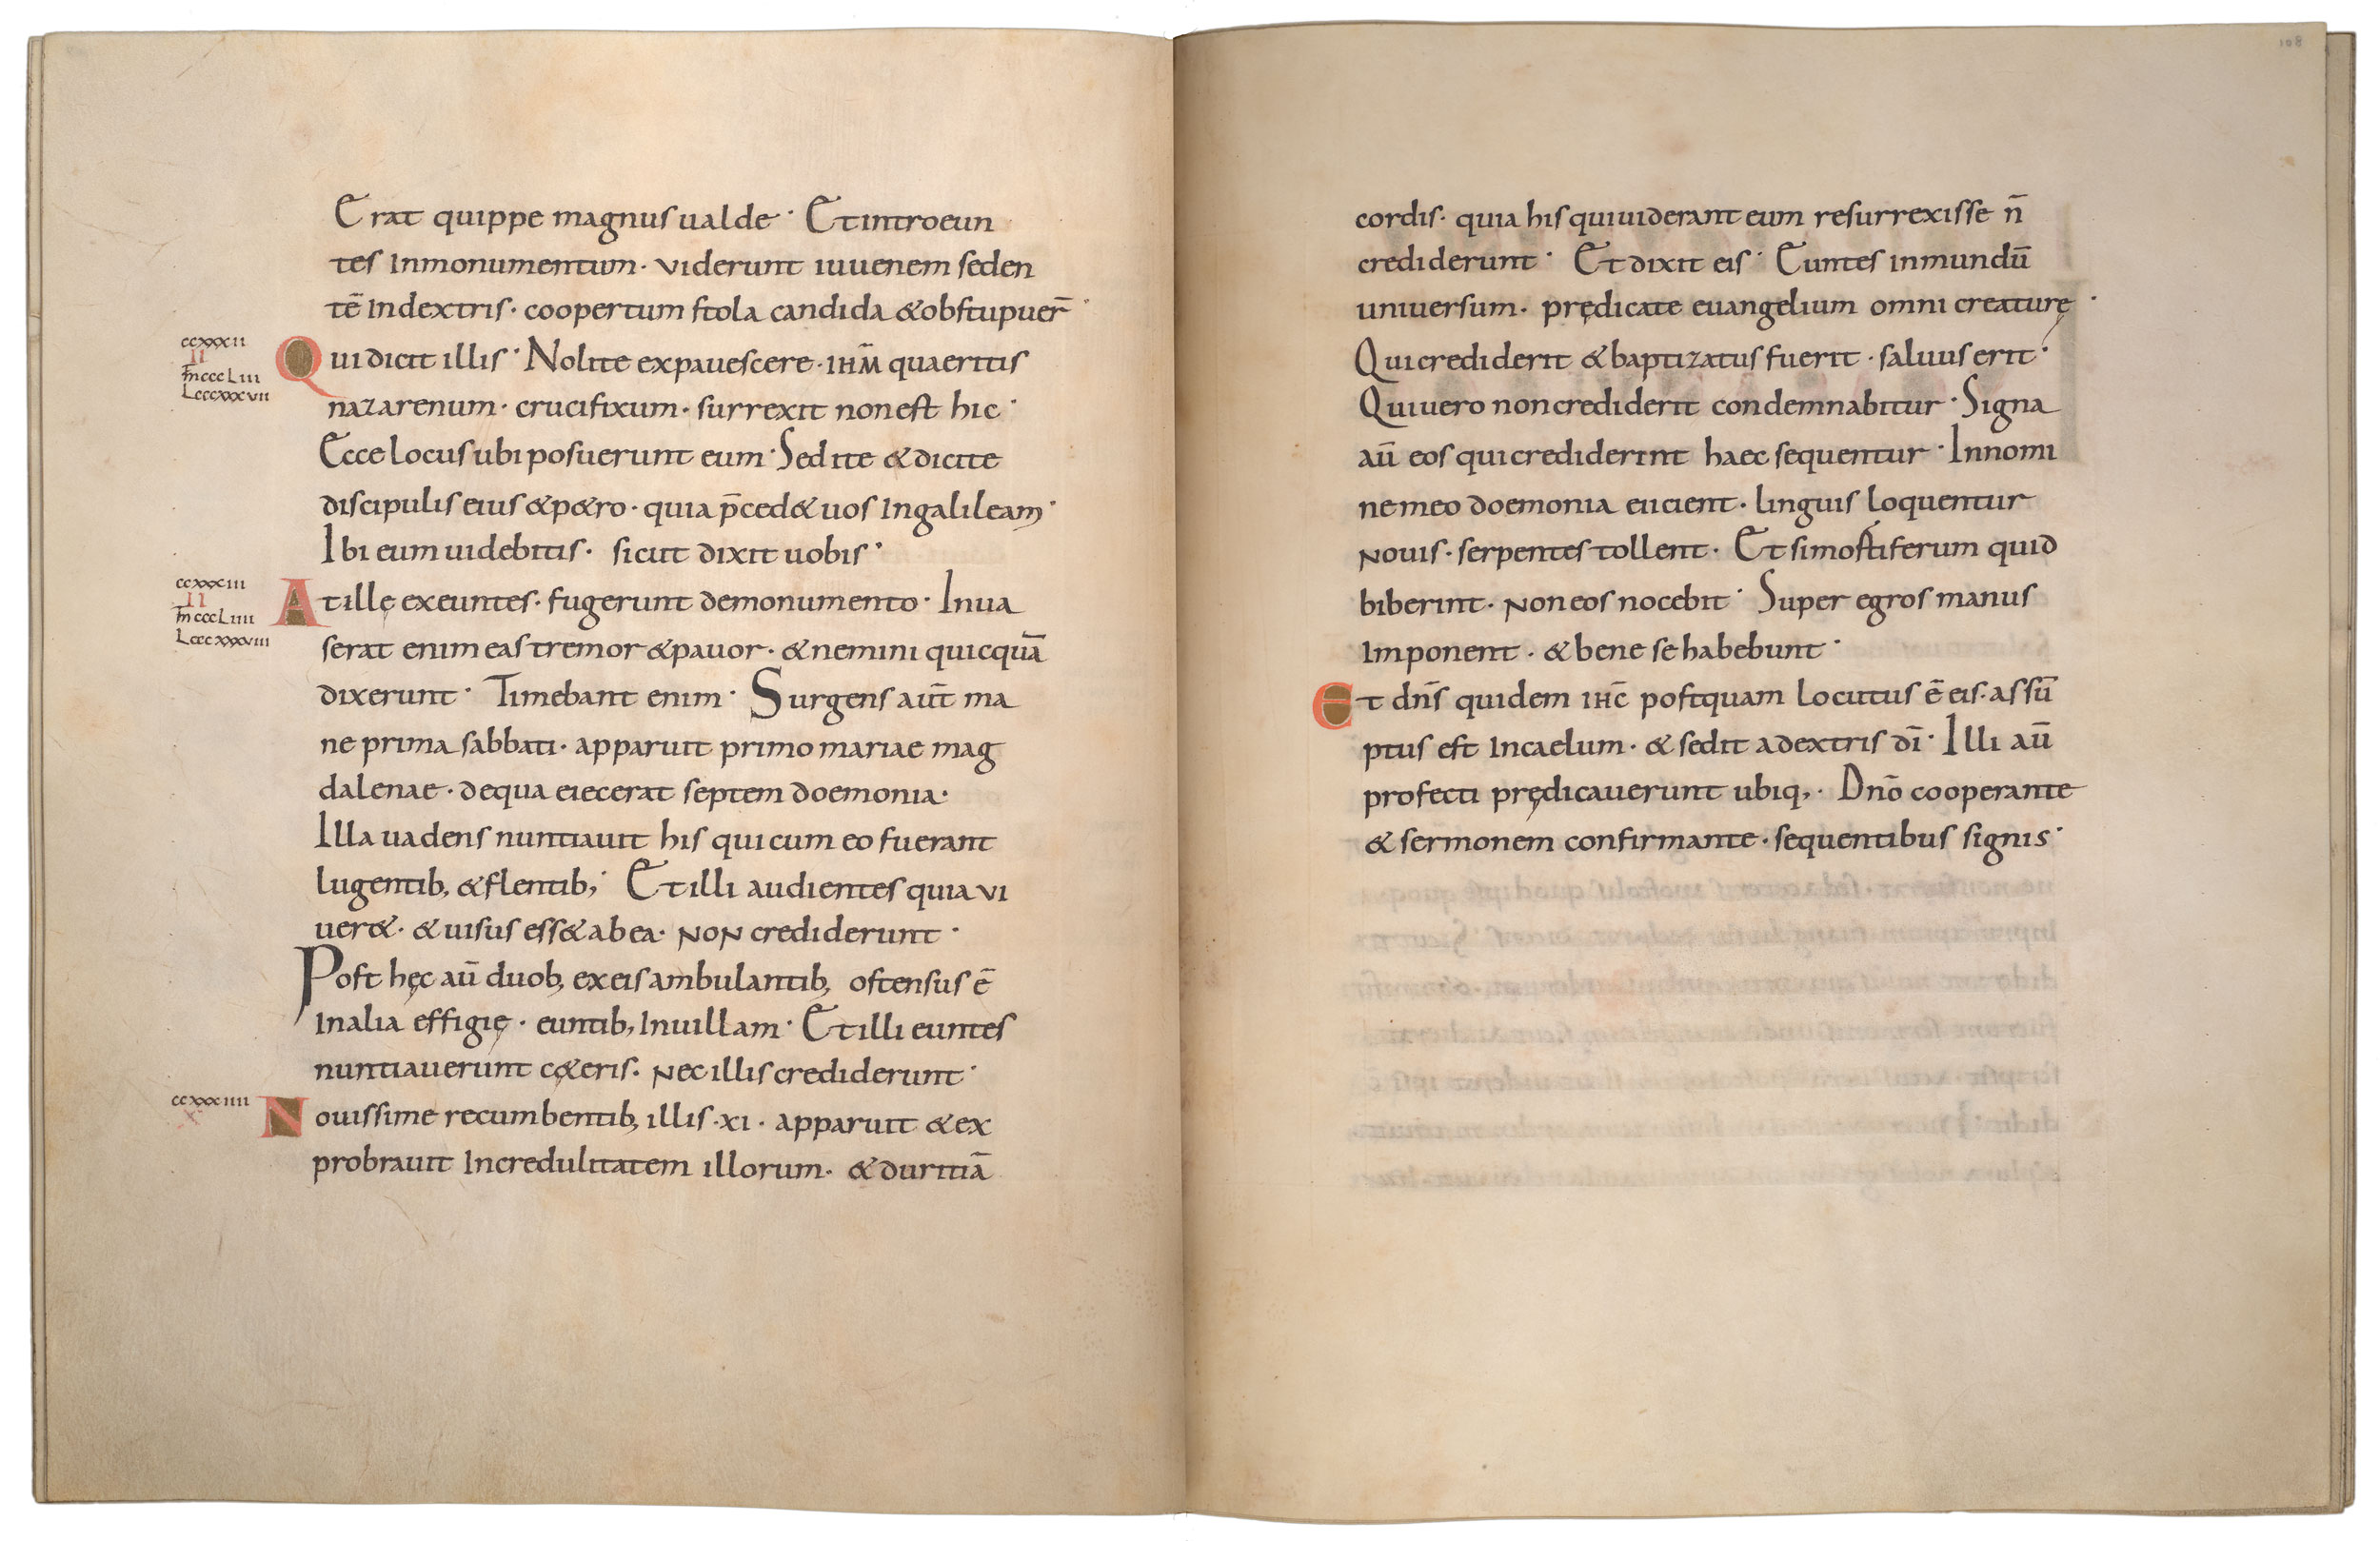 Erat quippe magnus ualde· Et introeun
tes Inmonumentum· viderunt iuuenem seden
tē Indextris· coopertum stola candida &obstupuer̄·
ccxxxii
II
m̄ cccLiii
Lcccxxxvii
Qui dicit illis· Nolite expauescere· ihm̄ quaeritis
nazarenum· crucifixum· surrexit non est hic·
Ecce locus ubi posuerunt eum· Sed ite & dicite
discipulis eius &p&ro· quia p̄ced& uos Ingalileam·
Ibi eum uidebitis· sicut dixit uobis·
ccxxxiii
II
m̄ cccLiiii
Lcccxxxviii
At illę exeuntes· fugerunt demonumento· Inua
serat enim eas tremor &pauor· & nemini quicquā
dixerunt· Timebant enim· Surgens aut̄ ma
ne prima sabbati· apparuit primo mariae mag
dalenae· dequa eiecerat septem doemonia·
Illa uadens nuntiauit his qui cum eo fuerant
lugentib, &flentib,· Et illi audientes quia vi
uer&· & uisus ess& ab ea· non crediderunt·
Post hęc aū duob, ex eis ambulantib, ostensus ē
Inalia effigię· euntib, Inuillam· Et illi euntes
nuntiauerunt c&eris· nec illis crediderunt·
ccxxxiiii
x
Nouissime recumbentib, illis ·xi· apparuit & ex
probrauit Incredulitatem illorum· & duritiā
108
cordis· quia his qui uiderant eum resurrexisse n̄
crediderunt· Et dixit eis· Euntes inmundū
uniuersum· prędicate euangelium omni creaturę·
Qui crediderit & baptizatus fuerit· saluus erit·
Qui uero non crediderit condemnabitur· Signa
aū eos qui crediderint haec sequentur· Innomi
ne meo doemonia eiicient· linguis loquentur
nouis· serpentes tollent· Et si mostiferum quid
biberint· non eos nocebit· Super egros manus
Imponent· & bene se habebunt·
Et dn̄s quidem ihc̄ postquam locutus ē eis· assū
ptus est Incaelum· & sedit adextris dī· Illi aū
profecti prędicauerunt ubiq,· Dn̄o cooperante
& sermonem confirmante· sequentibus signis·